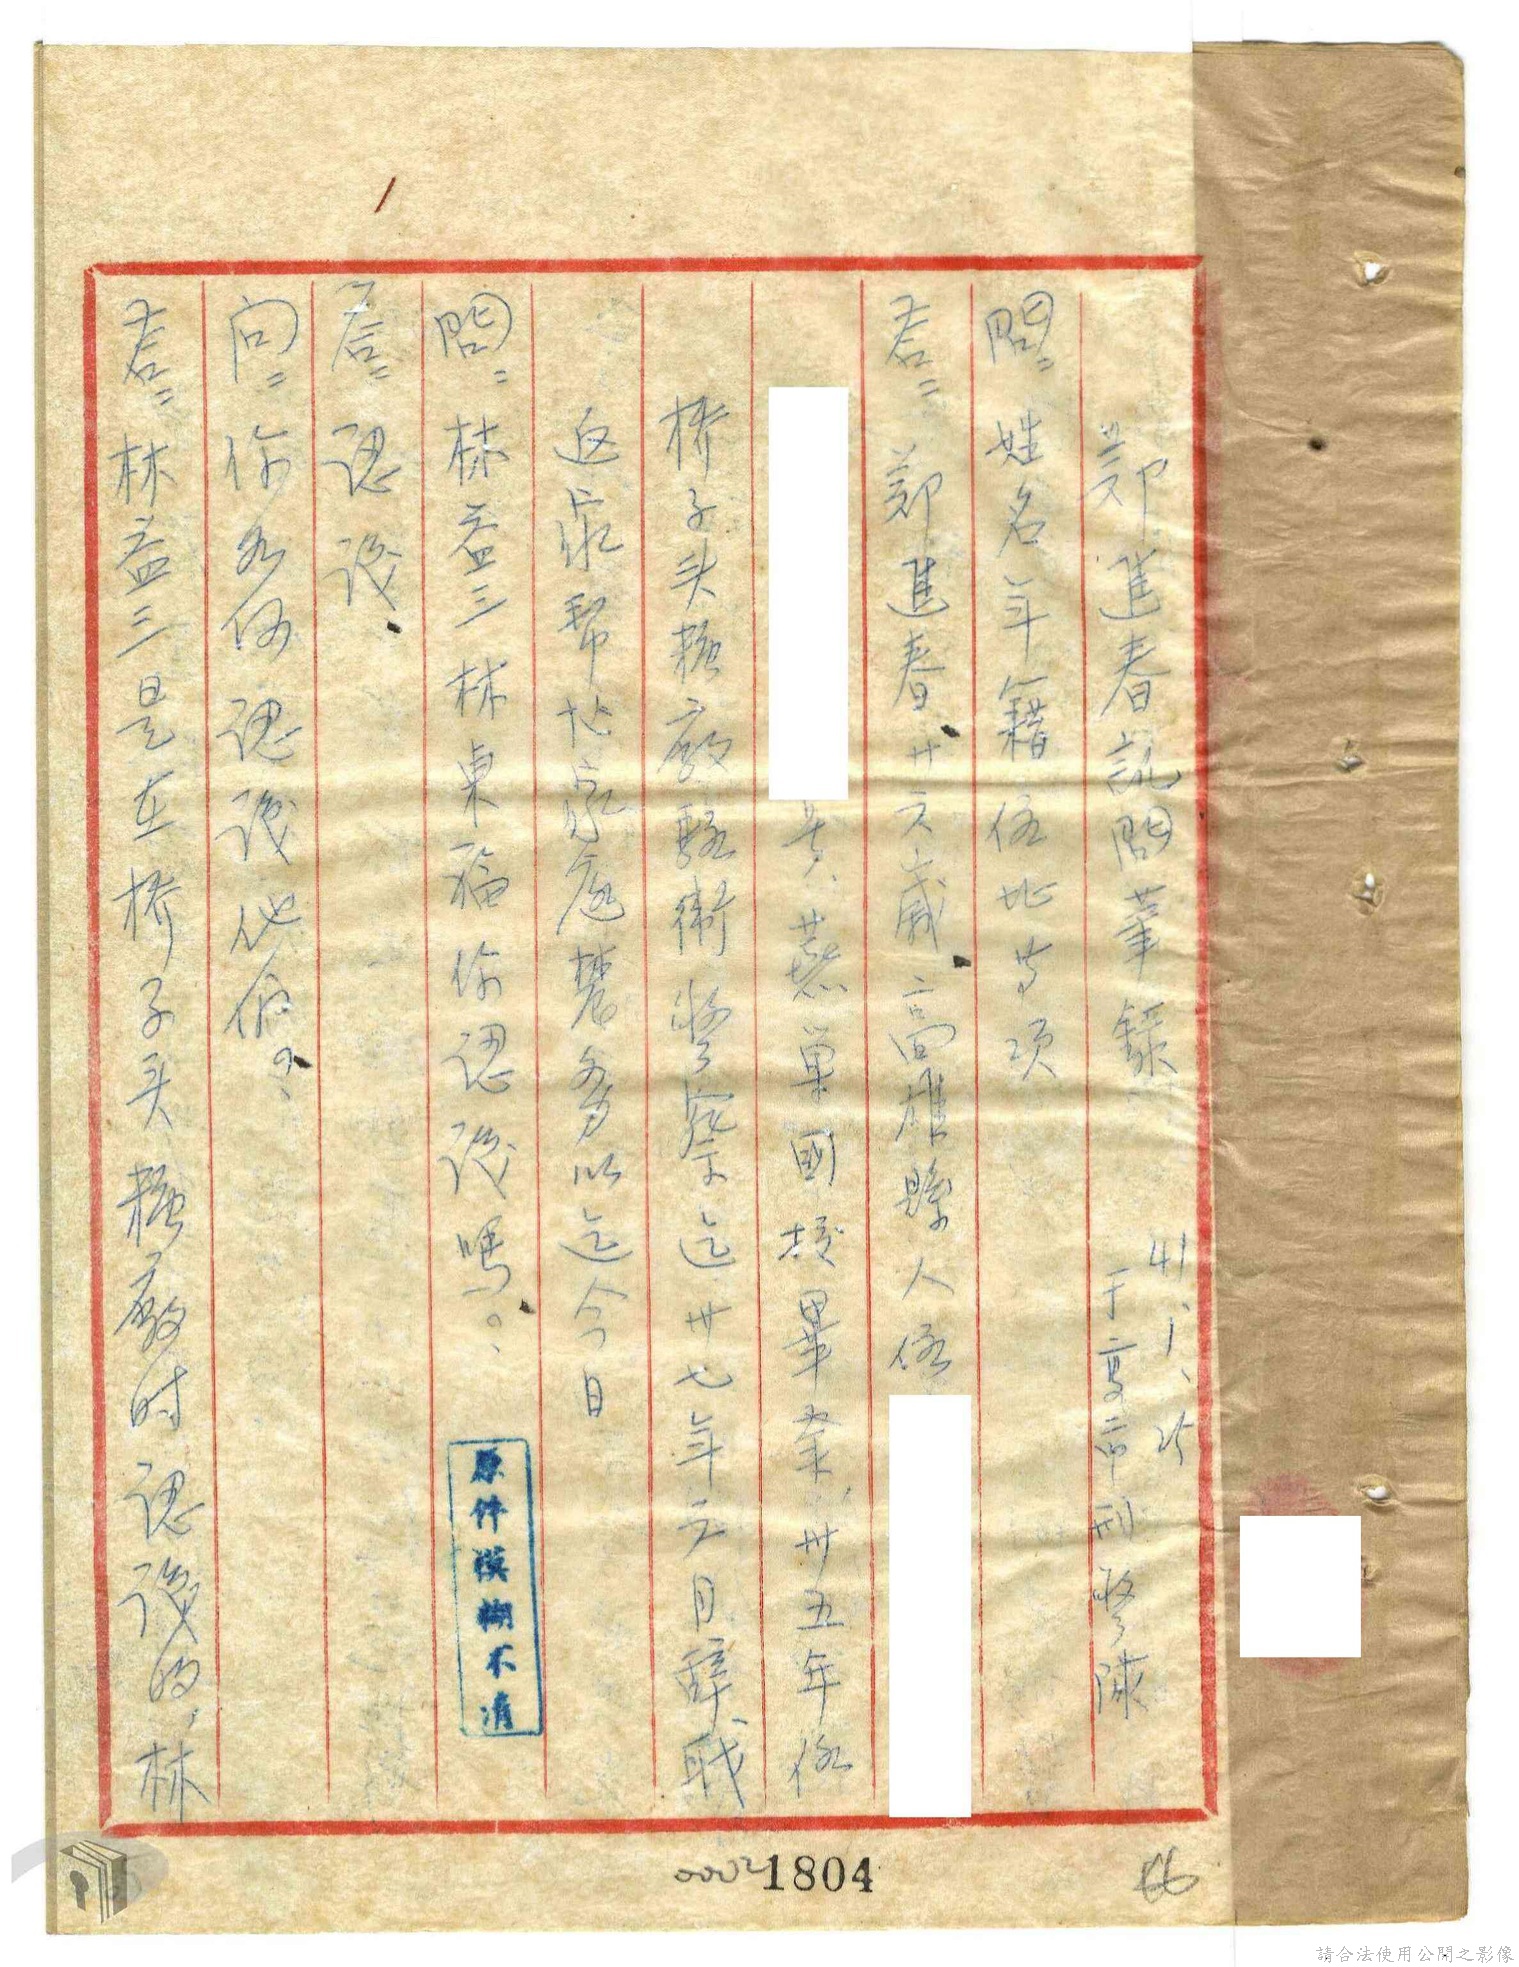 鄭進春訊問筆錄
41.1.25
于高市刑警隊
問:姓名年籍住址等項
答:鄭進春、廿六歲、高雄縣人住
業、燕巢國校畢業、卅五年任
桥子头糖廠駐衛警察迄卅七年六月辞职
返家幫忙家庭農務以迄今日
問:林益三林東福你認识嗎。
答:認识、
问:你為何認识他俩。
答:林益三是在桥子头糖廠时認识的,林
原件模糊不清
00021804
66
請合法使用公開之影像